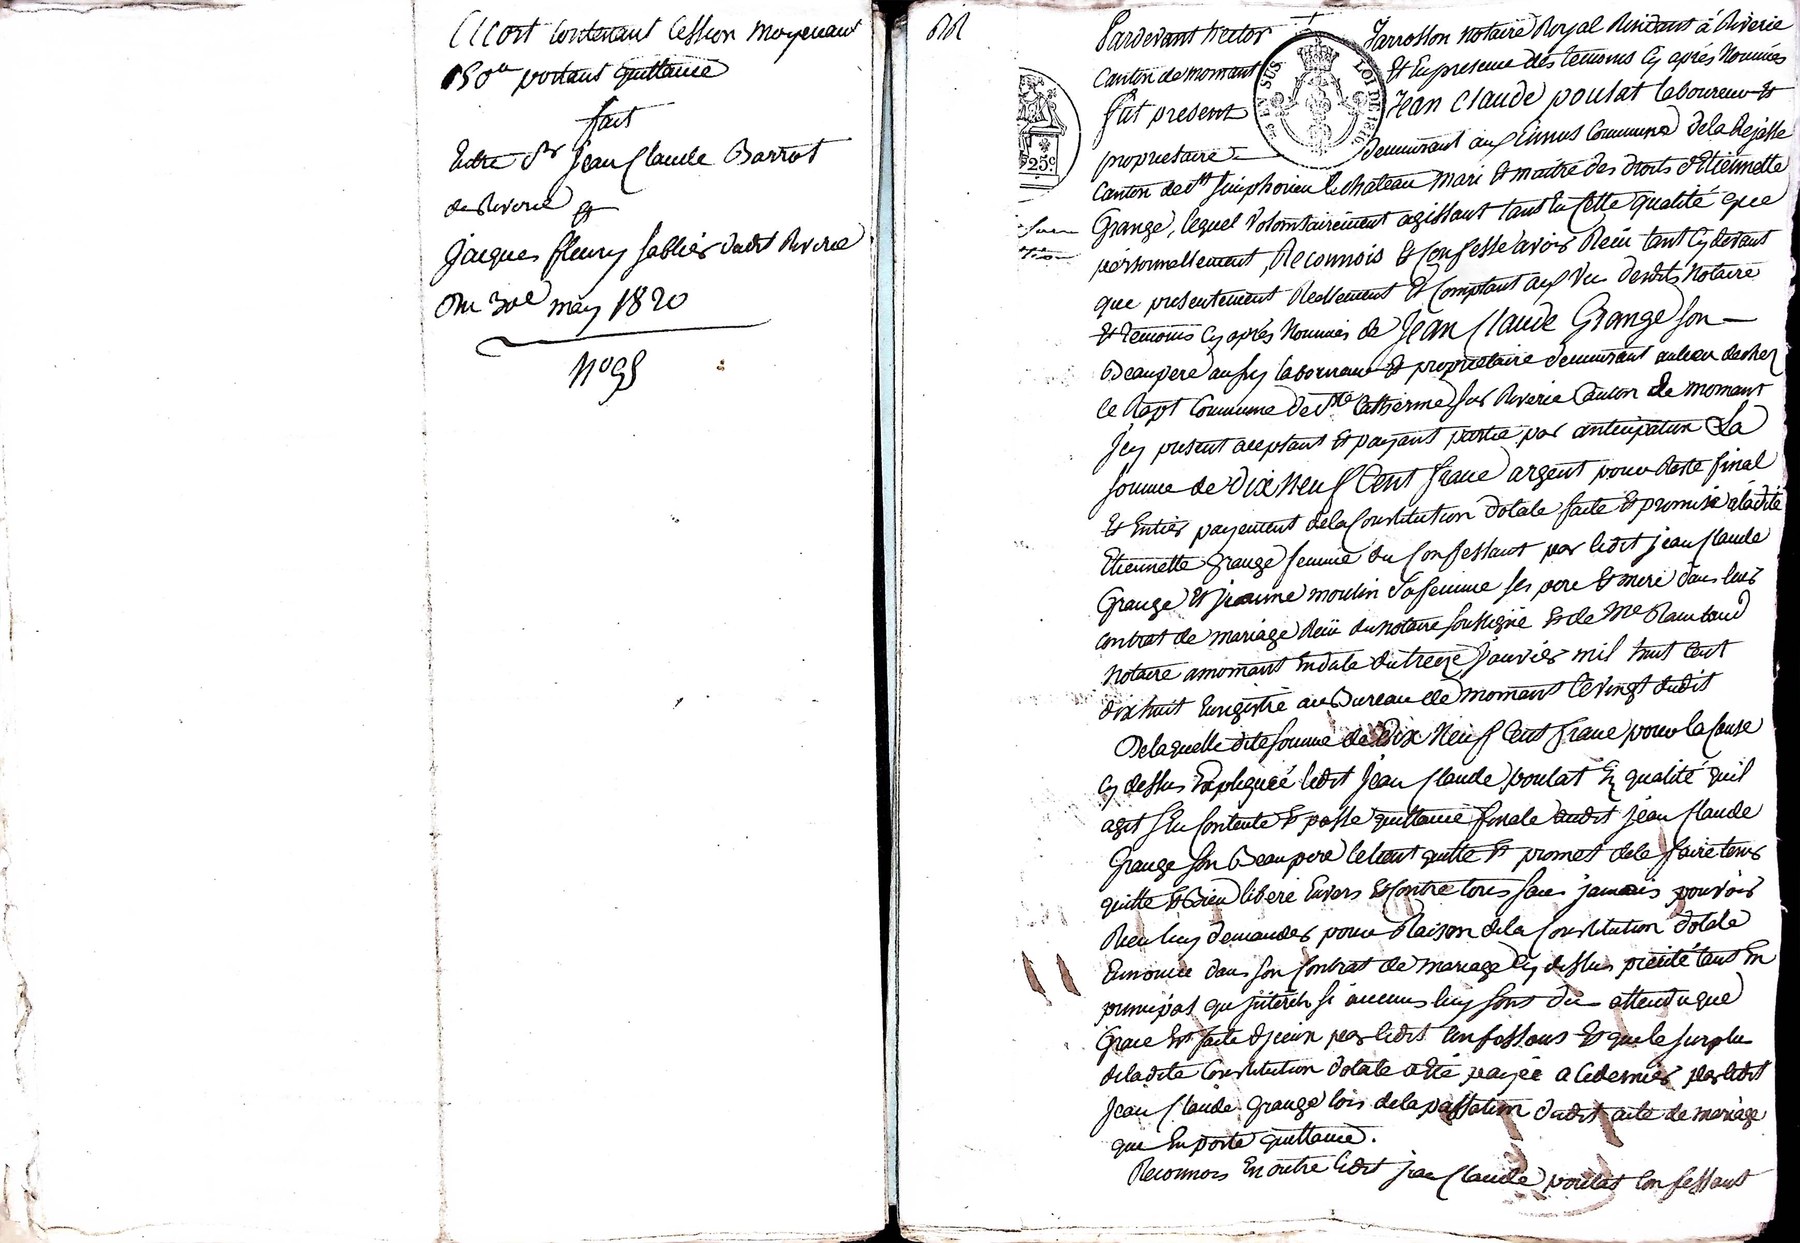 accort contenant Cession moyenant
150tt portant quittance
fait
Entre Sr Jean Claude Barrot
de Riverie et
Jacques fleury Sablier dudit Riverie
Du 30e may 1820
No 95
Pardevant hector Jarrosson notaire Royal Residant à Riverie
Canton de mornant Et En presence des temoins Cy aprés Nommés
fut present Jean Claude poulat laboureur et
proprietaire demeurant aux Commune de la Rajasse
EN SUS LOI DE 1816
25c.
Canton de st simphorien le chateau mari et maitre des droits d'Etiennette
Grange, lequel volontairement agissant tant En Cette qualité que
personnellement, Reconnois et Confesse avoir Reçu tant Cy devant
que presentement Reellement Et Comptant aux vus desdits Notaire
et temoins Cy aprés Nommés de Jean Claude Grange son
Beaupere aussy laboureur et proprietaire demeurant au lieu de chez
le Rapt Commune de ste Catherine sur Riverie Canton de mornant
Jcy present aceptant et payant partie par anticipation La
somme de Dix Neuf Cent franc argent pour Reste final
et Entier payement de la Constitution dotale faite et promise a ladite
Etiennette Grange femme du Confessant par ledit jean Claude
Grange et jeanne moulin sa femme ses pere et mere dans leur
contrat de mariage Reçu du notaire soussigné et de Me
Notaire a mornant En date du treize janvier mil huit Cent
dix huit Enregistré au Bureau de mornant le vingt dudit
De laquelle dite somme de Dix Neuf Cent franc pour la Cause
Cy dessus Expliquée ledit Jean Claude poulat En qualité quil
agit sen Contente et passe quittance finale audit jean Claude
Grange son Beaupere le tient quitte et promet de le faire tenir
quitte et Bien liberé Envers et Contre tous sans jamais pouvoir
Rien luy demander pour Raison de la Constitution dotale
Enoncée dans son Contrat de mariage Cy dessus précité tant En
principal qu'jnterets si aucuns luy sont dus attendu que
Grace Est faite d'jceux par ledit Confessant et que le surplus
de ladite Constitution dotale a Eté payée a Cedernier par ledit
Jean Claude Grange lors de la passation dudit acte de mariage
que En porte quittance.
Reconnois En outre ledit jean Claude poulat Confessant